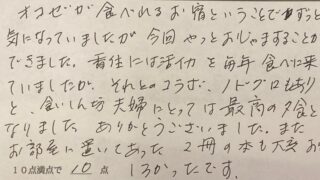 オコゼが食べれるお宿ということでずっと
気になっていましたが 今回 やっとおじゃますることが
できました。香住には活イカを毎年食べに来
ていましたが、それとのコラボ、ノドグロもあり
と、食いしん坊夫婦にとっては最高の夕食と
なりました ありがとうございました。また
お部屋に置いてあった 2冊の本も大変お
10点満点で 10 点 しろかったです。